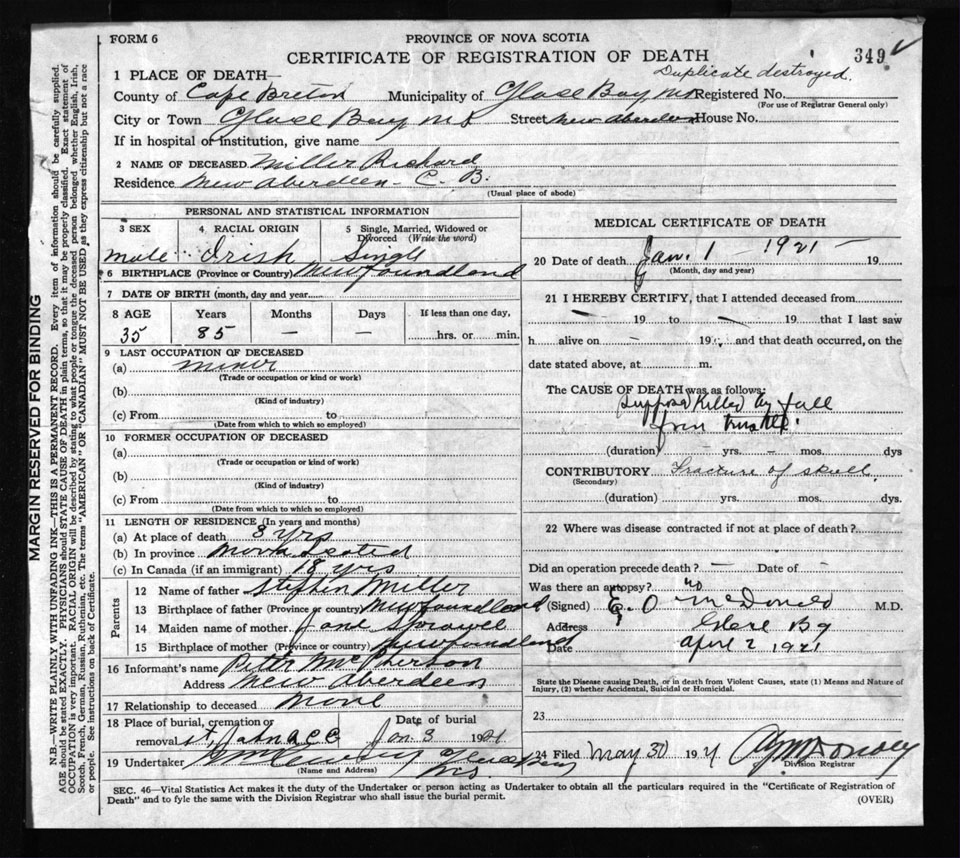 FORM 6
PROVINCE OF NOVA SCOTIA
CERTIFICATE OF REGISTRATION OF DEATH
349
Duplicate destroyed.
1 PLACE OF DEATH—
County of Cape Breton Municipality of Glace Bay NS Registered No.
(For use of Registrar General only)
City or Town Glace Bay NS Street New Aberdeen House No.
If in hospital or institution, give name
2 NAME OF DECEASED Miller Richard
Residence New Aberdeen - C. B.
(Usual place of abode)
PERSONAL AND STATISTICAL INFORMATION
3 SEX 4 RACIAL ORIGIN 5 Single, Married, Widowed or Divorced (Write the word)
male Irish Single
6 BIRTHPLACE (Province or Country) Newfoundland
7 DATE OF BIRTH (month, day and year)
8 AGE Years Months Days If less than one day,
35 85 — — hrs. or min.
9 LAST OCCUPATION OF DECEASED
(a) miner
(Trade or occupation or kind or work)
(b)
(Kind of industry)
(c) From to
(Date from which to which so employed)
10 FORMER OCCUPATION OF DECEASED
(a)
(Trade or occupation or kind of work)
(b)
(Kind of industry)
(c) From to
(Date from which to which so employed)
11 LENGTH OF RESIDENCE (In years and months)
(a) At place of death 3 yrs
(b) In province Nova Scotia
(c) In Canada (if an immigrant) 18 yrs
Parents
12 Name of father Stephen Miller
13 Birthplace of father (Province or country) Newfoundland
14 Maiden name of mother Jane
15 Birthplace of mother (Province or country) Newfoundland
16 Informant's name Peter McPherson
Address New Aberdeen
17 Relationship to deceased None
18 Place of burial, cremation or removal Date of burial
St. Jan 3 1921
19 Undertaker
(Name and Address)
MEDICAL CERTIFICATE OF DEATH
20 Date of death Jan. 1 - 1921 - 19
(Month, day and year)
21 I HEREBY CERTIFY, that I attended deceased from
— 19 to — 19 that I last saw
h alive on — 19 and that death occurred, on the
date stated above, at m.
The CAUSE OF DEATH was as follows:
Suppose Killed by fall
from trestle.
(duration) — yrs. — mos. dys
CONTRIBUTORY Fracture of skull
(Secondary)
(duration) yrs. mos. dys.
22 Where was disease contracted if not at place of death?
Did an operation precede death? — Date of —
Was there an autopsy? no
(Signed) E. O McDonald M.D.
Address Glace Bay
Date April 2 1921
State the Disease causing Death, or in death from Violent Causes, state (1) Means and Nature of
Injury, (2) whether Accidental, Suicidal or Homicidal.
23
24 Filed May 30 1921
Division Registrar
SEC. 46—Vital Statistics Act makes it the duty of the Undertaker or person acting as Undertaker to obtain all the particulars required in the "Certificate of Registration of
Death" and to fyle the same with the Division Registrar who shall issue the burial permit.
(OVER)
MARGIN RESERVED FOR BINDING
N.B.—WRITE PLAINLY WITH UNFADING INK—THIS IS A PERMANENT RECORD. Every item of information should be carefully supplied.
AGE should be stated EXACTLY. PHYSICIANS should STATE CAUSE OF DEATH in plain terms, so that it may be properly classified. Exact statement of
OCCUPATION is very important. RACIAL ORIGIN will be described by stating to what people or tongue the deceased person belonged whether English, Irish,
Scotch, French, German, Russian, Ruthenian, etc. The terms "AMERICAN" OR "CANADIAN" MUST NOT BE USED as they express citizenship but not a race
or people. See instructions on back of Certificate.